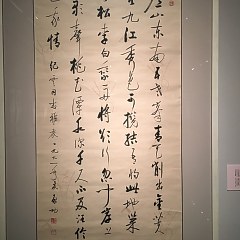 廬山東南五老峰青天削出金芙
蓉九江秀色可攬結吾將此地巢
雲松李白乘舟將欲行忽聞岸上
踏歌聲桃花潭水深千尺不及汪倫
送我情